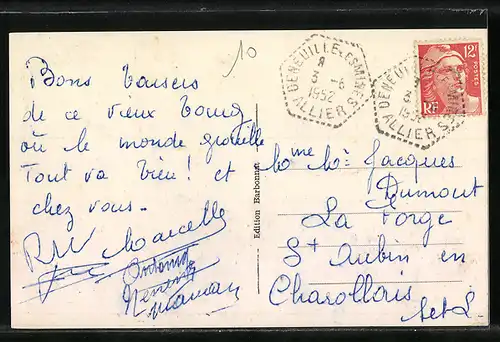 10
DENEUILLE-LES-MINES
8
3 -6
1952
ALLIER
12F
POSTES
RF
DENEUILLE
ALLIER
Bons baisers
de ce vieux bourg
où le monde grouille
Tout va bien ! et
chez vous -
Marcelle
Maman
Edition Barbonnet
Mme Mr Jacques
Dumont
La Forge
St Aubin en
Charollais
S et L.